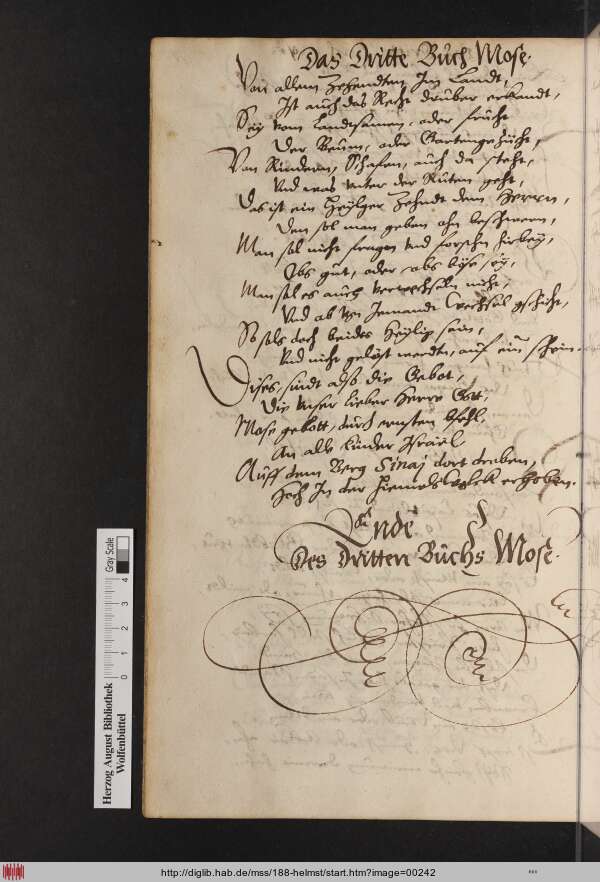 Das Dritte Buch Mose.
Von allem Zehendten Im Landt,
Ist auch das Recht druber erkandt,
Sey vom Landtsamen, oder frücht
Der Beum, oder Gartengezücht,
Von Rindern, Schafen, auch da steht,
Vnd was vnter der Ruten geht,
Das ist ein Heylger Zehndt dem Herrn,
Den sol man geben ohn beschwern,
Man sol nicht fragen vnd forschn hirbey,
Obs gut, oder obs böse sey,
Man sol es auch verwechseln nicht,
Vnd ob von Jemandt Wechsel gschicht,
So sols doch beides Heylig sein,
Vnd nicht gelöst werdn, auf ein schein.
Dises sindt also die Gebot,
Die vnser lieber Herre Gott,
Mose gebott, durch ernsten bfehl,
An alle Kinder Israel
Auff dem Berg Sinaj dort droben,
Hoch In der Himels Wolck erhoben.
Ende
Des Dritten Buchs Mose.
Herzog August Bibliothek
Wolfenbüttel
Gray Scale
0 1 2 3 4
http://diglib.hab.de/mss/188-helmst/start.htm?image=00242